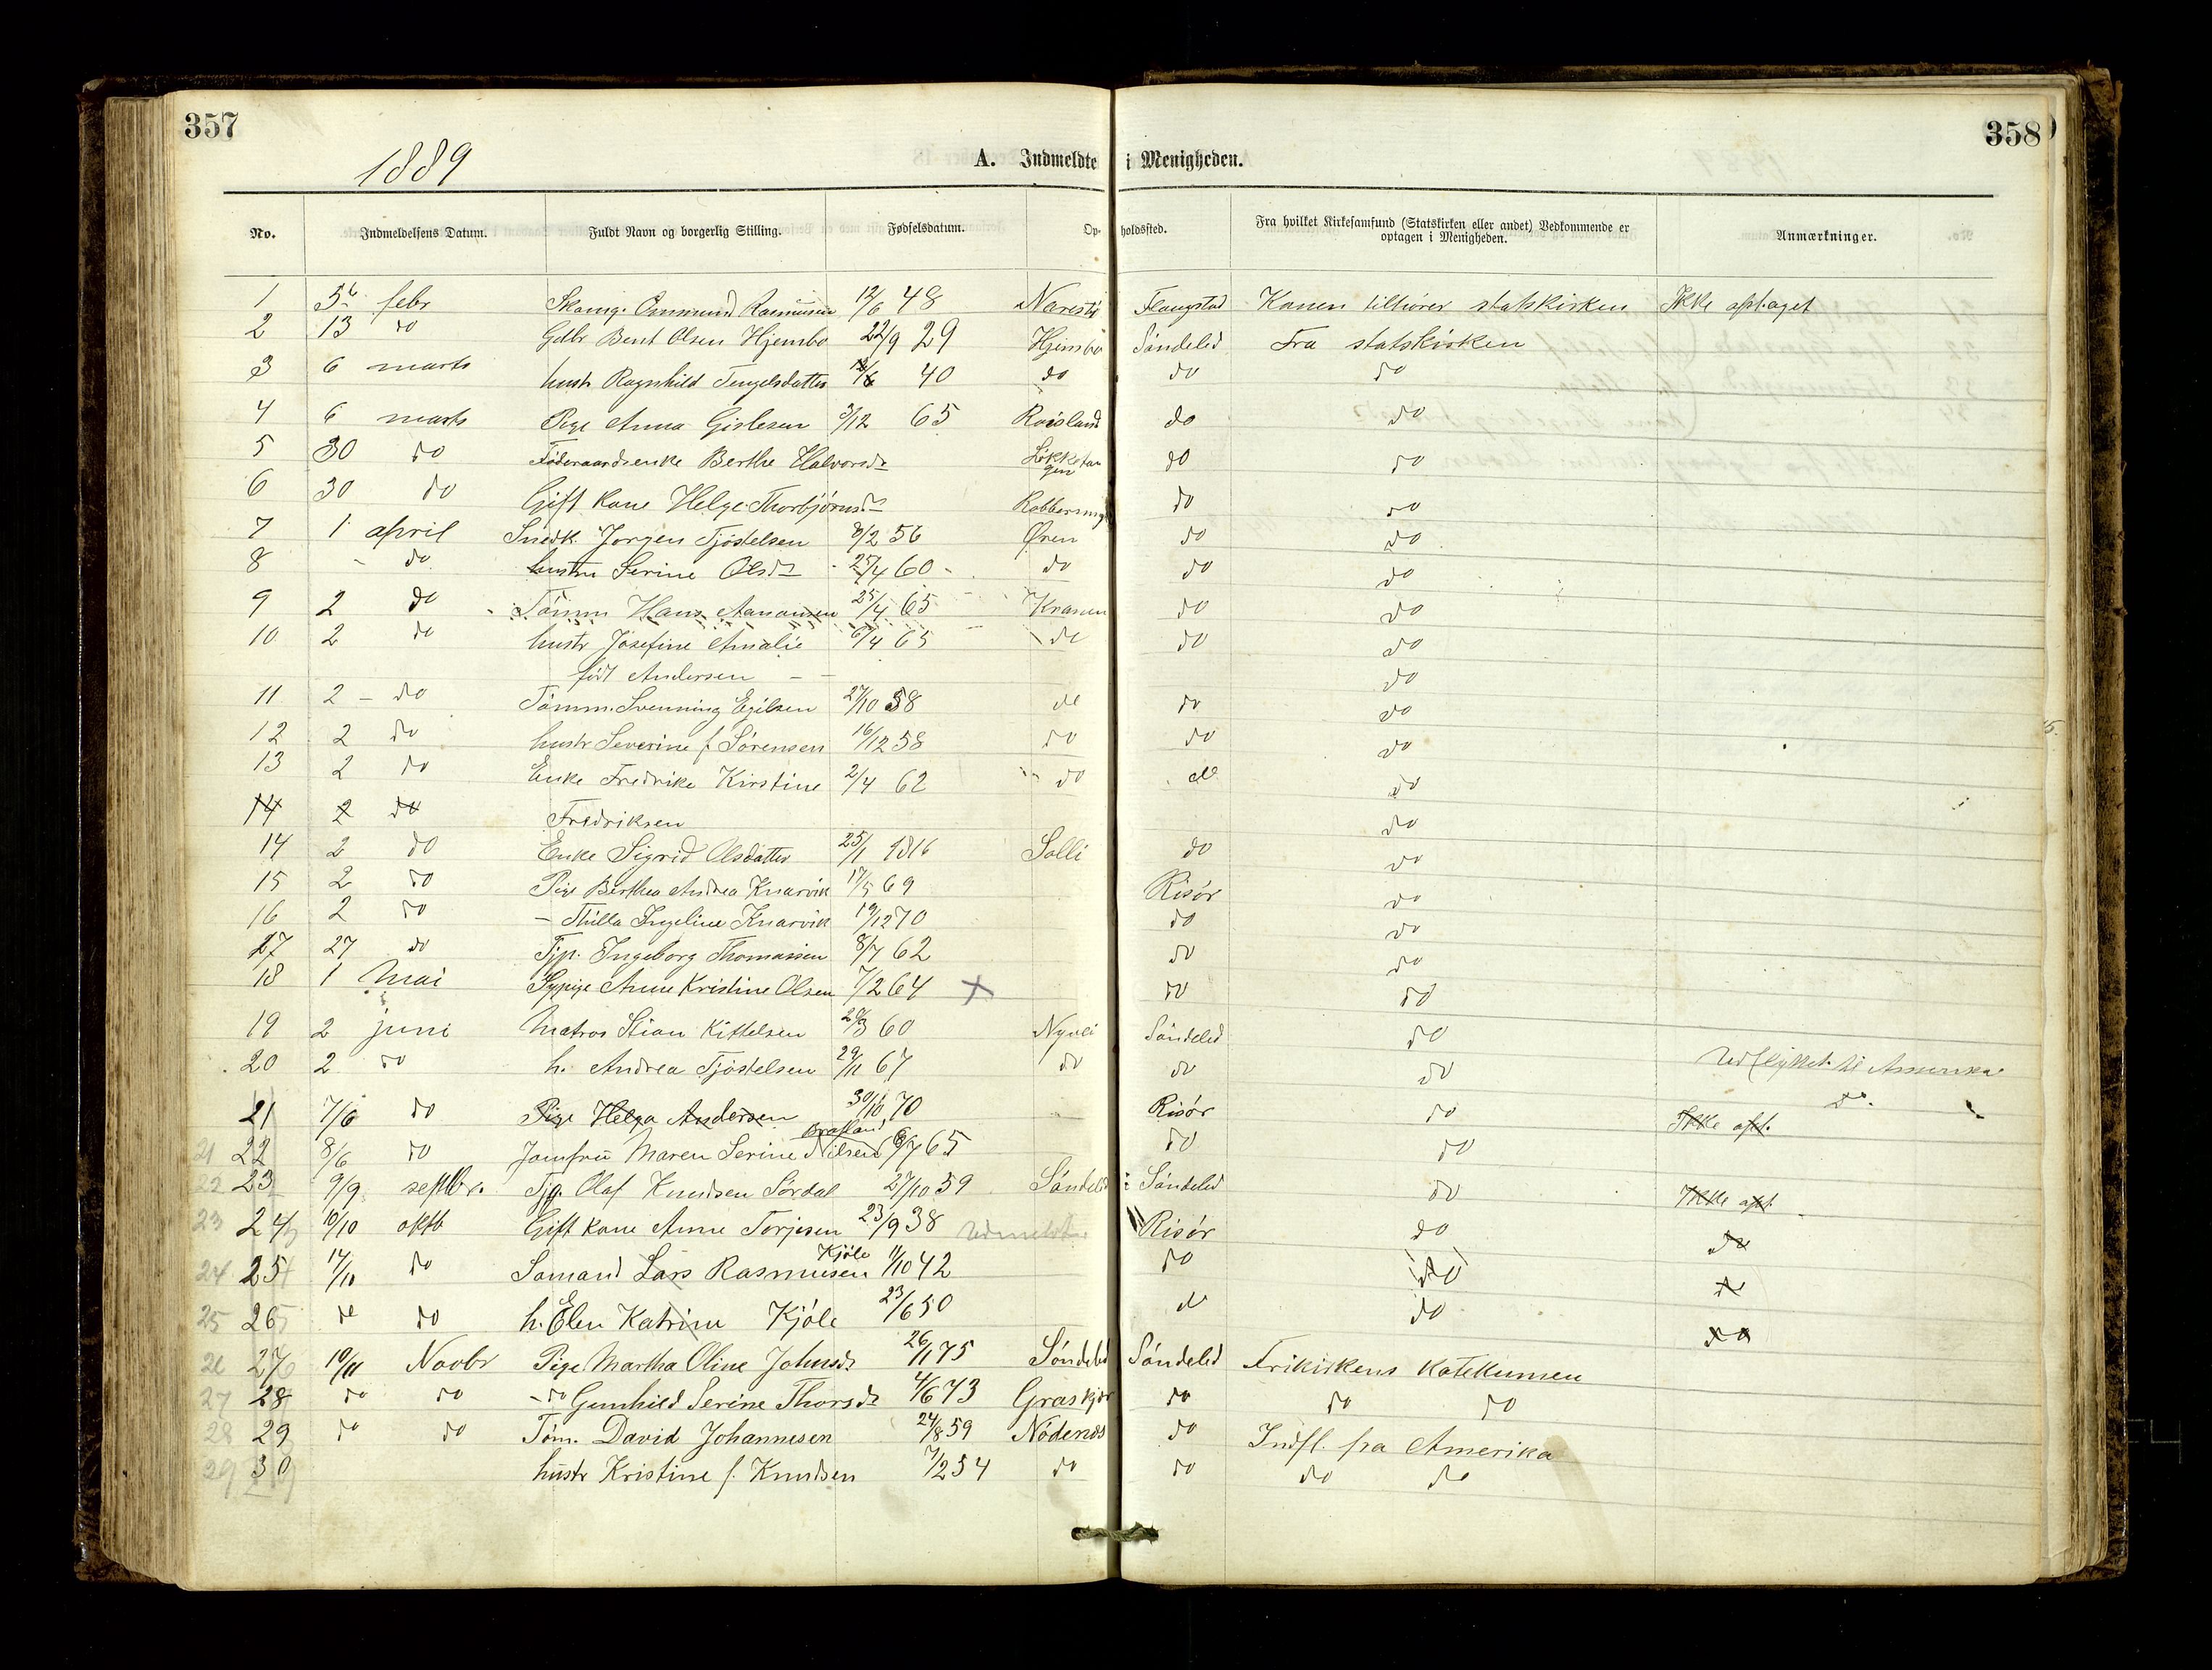 357
358
1889
A. Indmeldte i Menigheden.
No. Indmeldelsens Datum. Fuldt Navn og borgerlig Stilling. Fødselsdatum. Opholdssted. Fra hvilket Kirkesamfund (Statskirken eller andet) Vedkommende er optagen i Menigheden. Anmærkninger.
1 5 febr Rasmussen 12/6 48 Flaugstad Konen tilhører statskirken Ikke optaget
2 13 do Gdbr Bent Olsen Hjembo 22/9 29 Hjembo Söndeled Fra statskirken
3 6 marts hustr Ragnhild Tengelsdatter 40 do do do
4 6 marts Pige Anna Gislesen 3/12 65 Roisland do do
5 30 do Föderaadsenke Berthe Halvorsdr do do
6 30 do Gift kone Helge Thorbjörnsdr do do
7 1 april Snedk. Jorgen Tjöstelsen 8/2 56 Øren do do
8 - do hustru Serine Olsdr 25/4 60 do do do
9 2 do Tömm Hans Aanonsen 25/4 65 Kranen do do
10 2 do hustr Josefine Amalie 6/4 65 do do do
født Andersen do
11 2 - do Tömm. Svenning Egilsen 27/10 58 do do do
12 2 do hustr Severine f Sörensen 16/12 58 do do do
13 2 do Enke Fredrike Kirstine 2/4 62 do do do
14 2 do Fredriksen do
14 2 do Enke Sigrid Olsdatter 25/1 1816 Solli do do
15 2 do Pige Berthea Andrea Knarvik 17/5 69 Risör do
16 2 do - Thilla Ingeline Knarvik 19/12 70 do do
17 27 do Tjp. Ingeborg Thomassen 8/7 62 do do
18 1 Mai Sypige Anne Kristine Olsen 7/2 64 x do do
19 2 juni Matros Stian Kittelsen 60 Söndeled do
20 2 do h. Andrea Tjöstelsen 29/11 67 do do do Udflyttet til Amerika
21 7/6 do Pige Helga Andersen 30/10 70 Risör do do. Ikke opt.
21 22 8/6 do Jomfru Maren Serine Nilsen 65 do do
22 23 9/9 septbr. Tjg. Olaf Knudsen Sördal 27/10 59 Söndeled i Söndeled do Ikke opt
23 24 10/10 oktb Gift kone Anne Torjesen 23/9 38 Udmeldt Risör do do
24 25 17/10 do Sömand Lars Rasmusen Kjöle 11/10 42 do do do
25 26 do do h. Elen Katrine Kjöle 23/6 50 do do do
26 27 10/11 Novbr Pige Martha Oline Johnsdr 26/11 75 Söndeled Söndeled Frikirkens Katekumen
27 28 do do - do Gunhild Serine Thorsdr 4/6 73 Graskjær do do do
28 29 do do Töm. David Johannesen 24/8 59 Nödenes do Indfl. fra Amerika
29 30 hustr Kristine f. Knudsen 7/2 54 do do do do